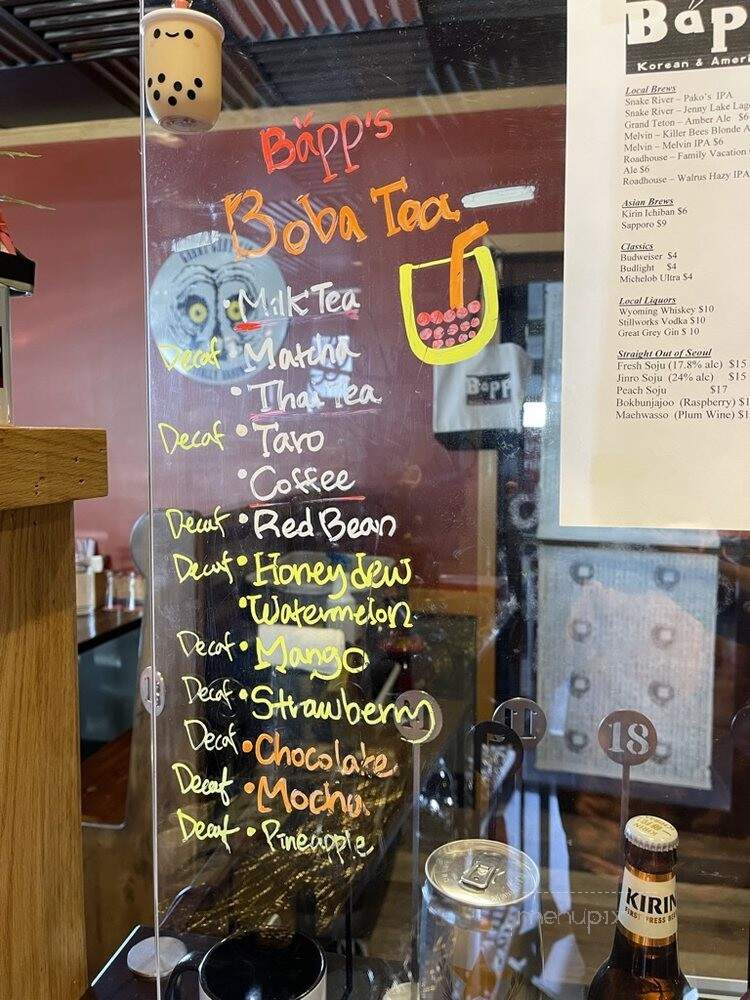 Bäpp's
Boba Tea
• Milk Tea
Decaf • Matcha
• Thai Tea
Decaf • Taro
• Coffee
Decaf • Red Bean
Decaf • Honeydew
• Watermelon
Decaf • Mango
Decaf • Strawberry
Decaf • Chocolate
Decaf • Mocha
Decaf • Pineapple
Bäp
Korean & Ameri
Local Brews
Snake River – Pako's IPA
Snake River – Jenny Lake Lag
Grand Teton – Amber Ale $6
Melvin – Killer Bees Blonde A
Melvin – Melvin IPA $6
Roadhouse – Family Vacation
Ale $6
Roadhouse – Walrus Hazy IPA
Asian Brews
Kirin Ichiban $6
Sapporo $9
Classics
Budweiser $4
Budlight $4
Michelob Ultra $4
Local Liquors
Wyoming Whiskey $10
Stillworks Vodka $10
Great Grey Gin $ 10
Straight Out of Seoul
Fresh Soju (17.8% alc) $15
Jinro Soju (24% alc) $15
Peach Soju $17
Bokbunjajoo (Raspberry) $1
Maehwasso (Plum Wine) $1
Bäpp
11
18
KIRIN
FIRST PRESS BEE
menupix